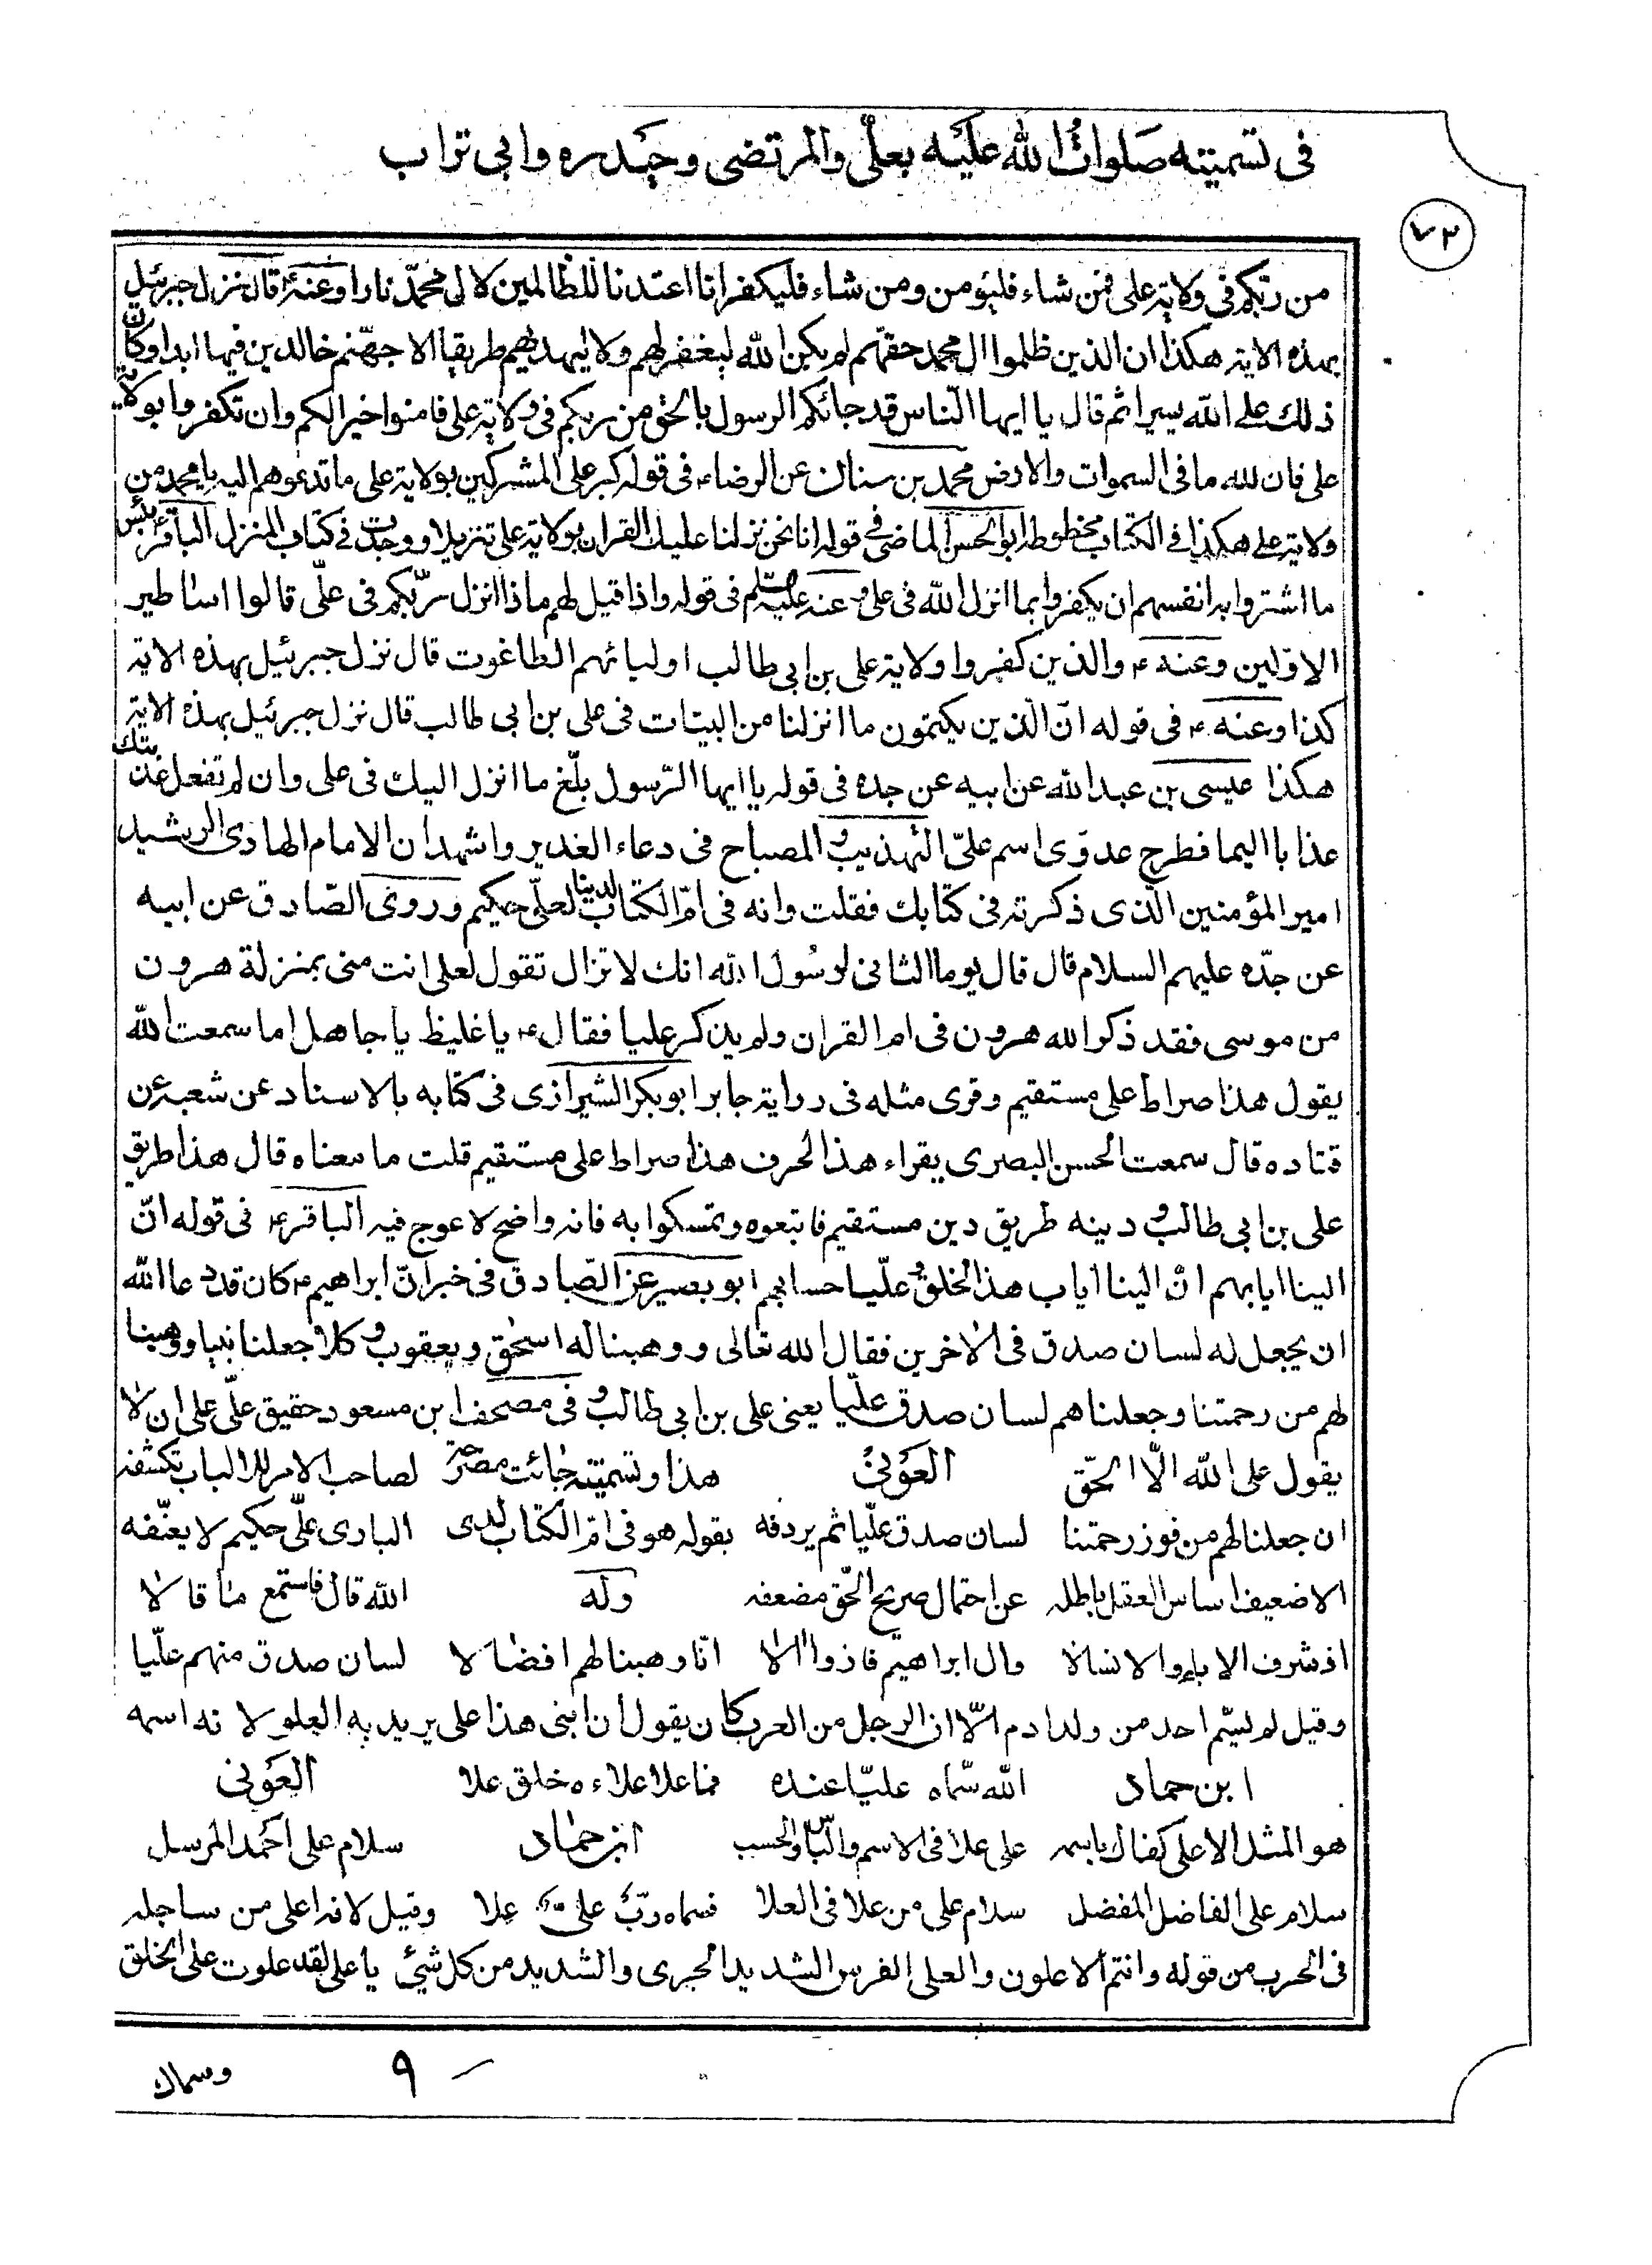 في تسميته صلوات الله عليه بعلي والمرتضى وحيدره وابي تراب
٧٢
من ربكم في ولاية على فمن شاء فليؤمن ومن شاء فليكفر انا اعتدنا للظالمين لال محمد نارا وعنه ع قال نزل جبرئيل
بهذه الاية هكذا ان الذين ظلموا ال محمد حقهم لم يكن الله ليغفر لهم ولا ليهديهم طريقا الا جهنم خالدين فيها ابدا وكان
ذلك على الله يسيرا ثم قال يا ايها الناس قد جائكم الرسول بالحق من ربكم في ولاية على فامنوا خيرا لكم وان تكفروا بولاية
على فان لله ما في السموات والارض محمد بن سنان عن الرضاء في قوله كبر على المشركين بولاية على ما تدعوهم اليه يا محمد من
ولاية على هكذا في الكتاب مخطوطة ابو الحسن الماضي في قوله انا نحن نزلنا عليك القران بولاية على تنزيلا ووجدت في كتاب المنزل الباقر ع بئس
ما اشتروا به انفسهم ان يكفروا بما انزل الله في على وعنه عليه السلم في قوله واذا قيل لهم ماذا انزل ربكم في على قالوا اساطير
الاولين وعنه ع والذين كفروا ولاية على بن ابي طالب اوليائهم الطاغوت قال نزل جبرئيل بهذه الاية
كذا وعنه ع في قوله ان الذين يكتمون ما انزلنا من البينات في على بن ابي طالب قال نزل جبرئيل بهذه الاية
هكذا عيسى بن عبد الله عن ابيه عن جده في قوله يا ايها الرسول بلغ ما انزل اليك في على وان لم تفعل عذبتك
عذابا اليما فطرح عدوى اسم على التهذيب والمصباح في دعاء الغدير واشهد ان الامام الهادى الرشيد
امير المؤمنين الذى ذكرته في كتابك فقلت وانه في ام الكتاب لدينا لعلى حكيم وروى الصادق عن ابيه
عن جده عليهم السلام قال قال يوما الثاني لرسول الله انك لا تزال تقول لعلى انت منى بمنزلة هرون
من موسى فقد ذكر الله هرون في ام القران ولم يذكر عليا فقال ع يا غليظ يا جاهل اما سمعت الله
يقول هذا صراط على مستقيم وقرى مثله في رواية جابر ابو بكر الشيرازى في كتابه بالاسناد عن شعبة عن
قتاده قال سمعت الحسن البصرى يقراء هذا الحرف هذا صراط على مستقيم قلت ما معناه قال هذا طريق
على بن ابي طالب ودينه طريق دين مستقيم فاتبعوه وتمسكوا به فانه واضح لا عوج فيه الباقر ع في قوله ان
الينا ايابهم ان الينا اياب هذا الخلق وعلينا حسابهم ابو بصير عن الصادق في خبر ان ابراهيم ع كان قد دعا الله
ان يجعل له لسان صدق في الاخرين فقال الله تعالى ووهبنا له اسحق ويعقوب وكلا جعلنا نبيا ووهبنا
لهم من رحمتنا وجعلنا هم لسان صدق عليا يعنى على بن ابي طالب وفي مصحف ابن مسعود حقيق على على ان لا
يقول على الله الا الحق العونى هذا وتسميته جائت مصرحة لصاحب الامر للالباب تكشفه
ان جعلنا لهم من فوز رحمتنا لسان صدق عليا ثم يردفه بقوله هو في ام الكتاب لدى البارى على حكيم لا يعنفه
الا ضعيف اساس العقل باطله عن احتمال صريح الحق مضعفه وله الله قال فاستمع ما قالا
اذ شرف الاباء والانسالا وال ابراهيم فازوا الالا انا وهبنا لهم افضالا لسان صدق منهم عليا
وقيل لم يسم احد من ولد ادم الا ان الرجل من العرب كان يقول ان ابنى هذا على يريد به العلو لا نه اسمه
ابن حماد الله سماه عليا عنده فما علا علاءه خلق علا العونى
هو المثل الاعلى كفاك باسمه على علا في الاسم والباس والحسب ابن حماد سلام على احمد المرسل
سلام على الفاضل المفضل سلام على من علا في العلا فسماه رب على علا وقيل لانه اعلى من ساجله
في الحرب من قوله وانتم الاعلون والعلى الفرس الشديد الجرى والشديد من كل شئ يا على لقد علوت على الخلق
وسماك
٩